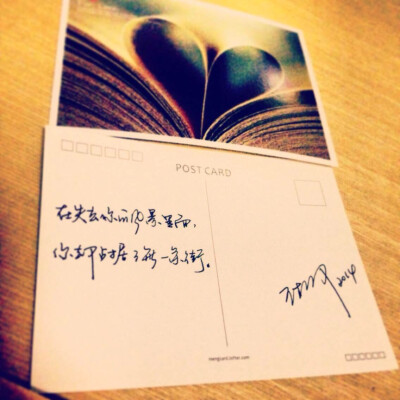 POST CARD
在失去你的风景里面，
你却占据了每一条街。
2014